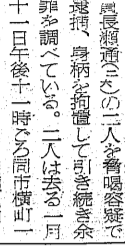 員長瀬通の二人を脅喝容疑で
逮捕、身柄を拘置して引き続き余
罪を調べている。二人は去る一月
十一日午後十一時ごろ同市横町一